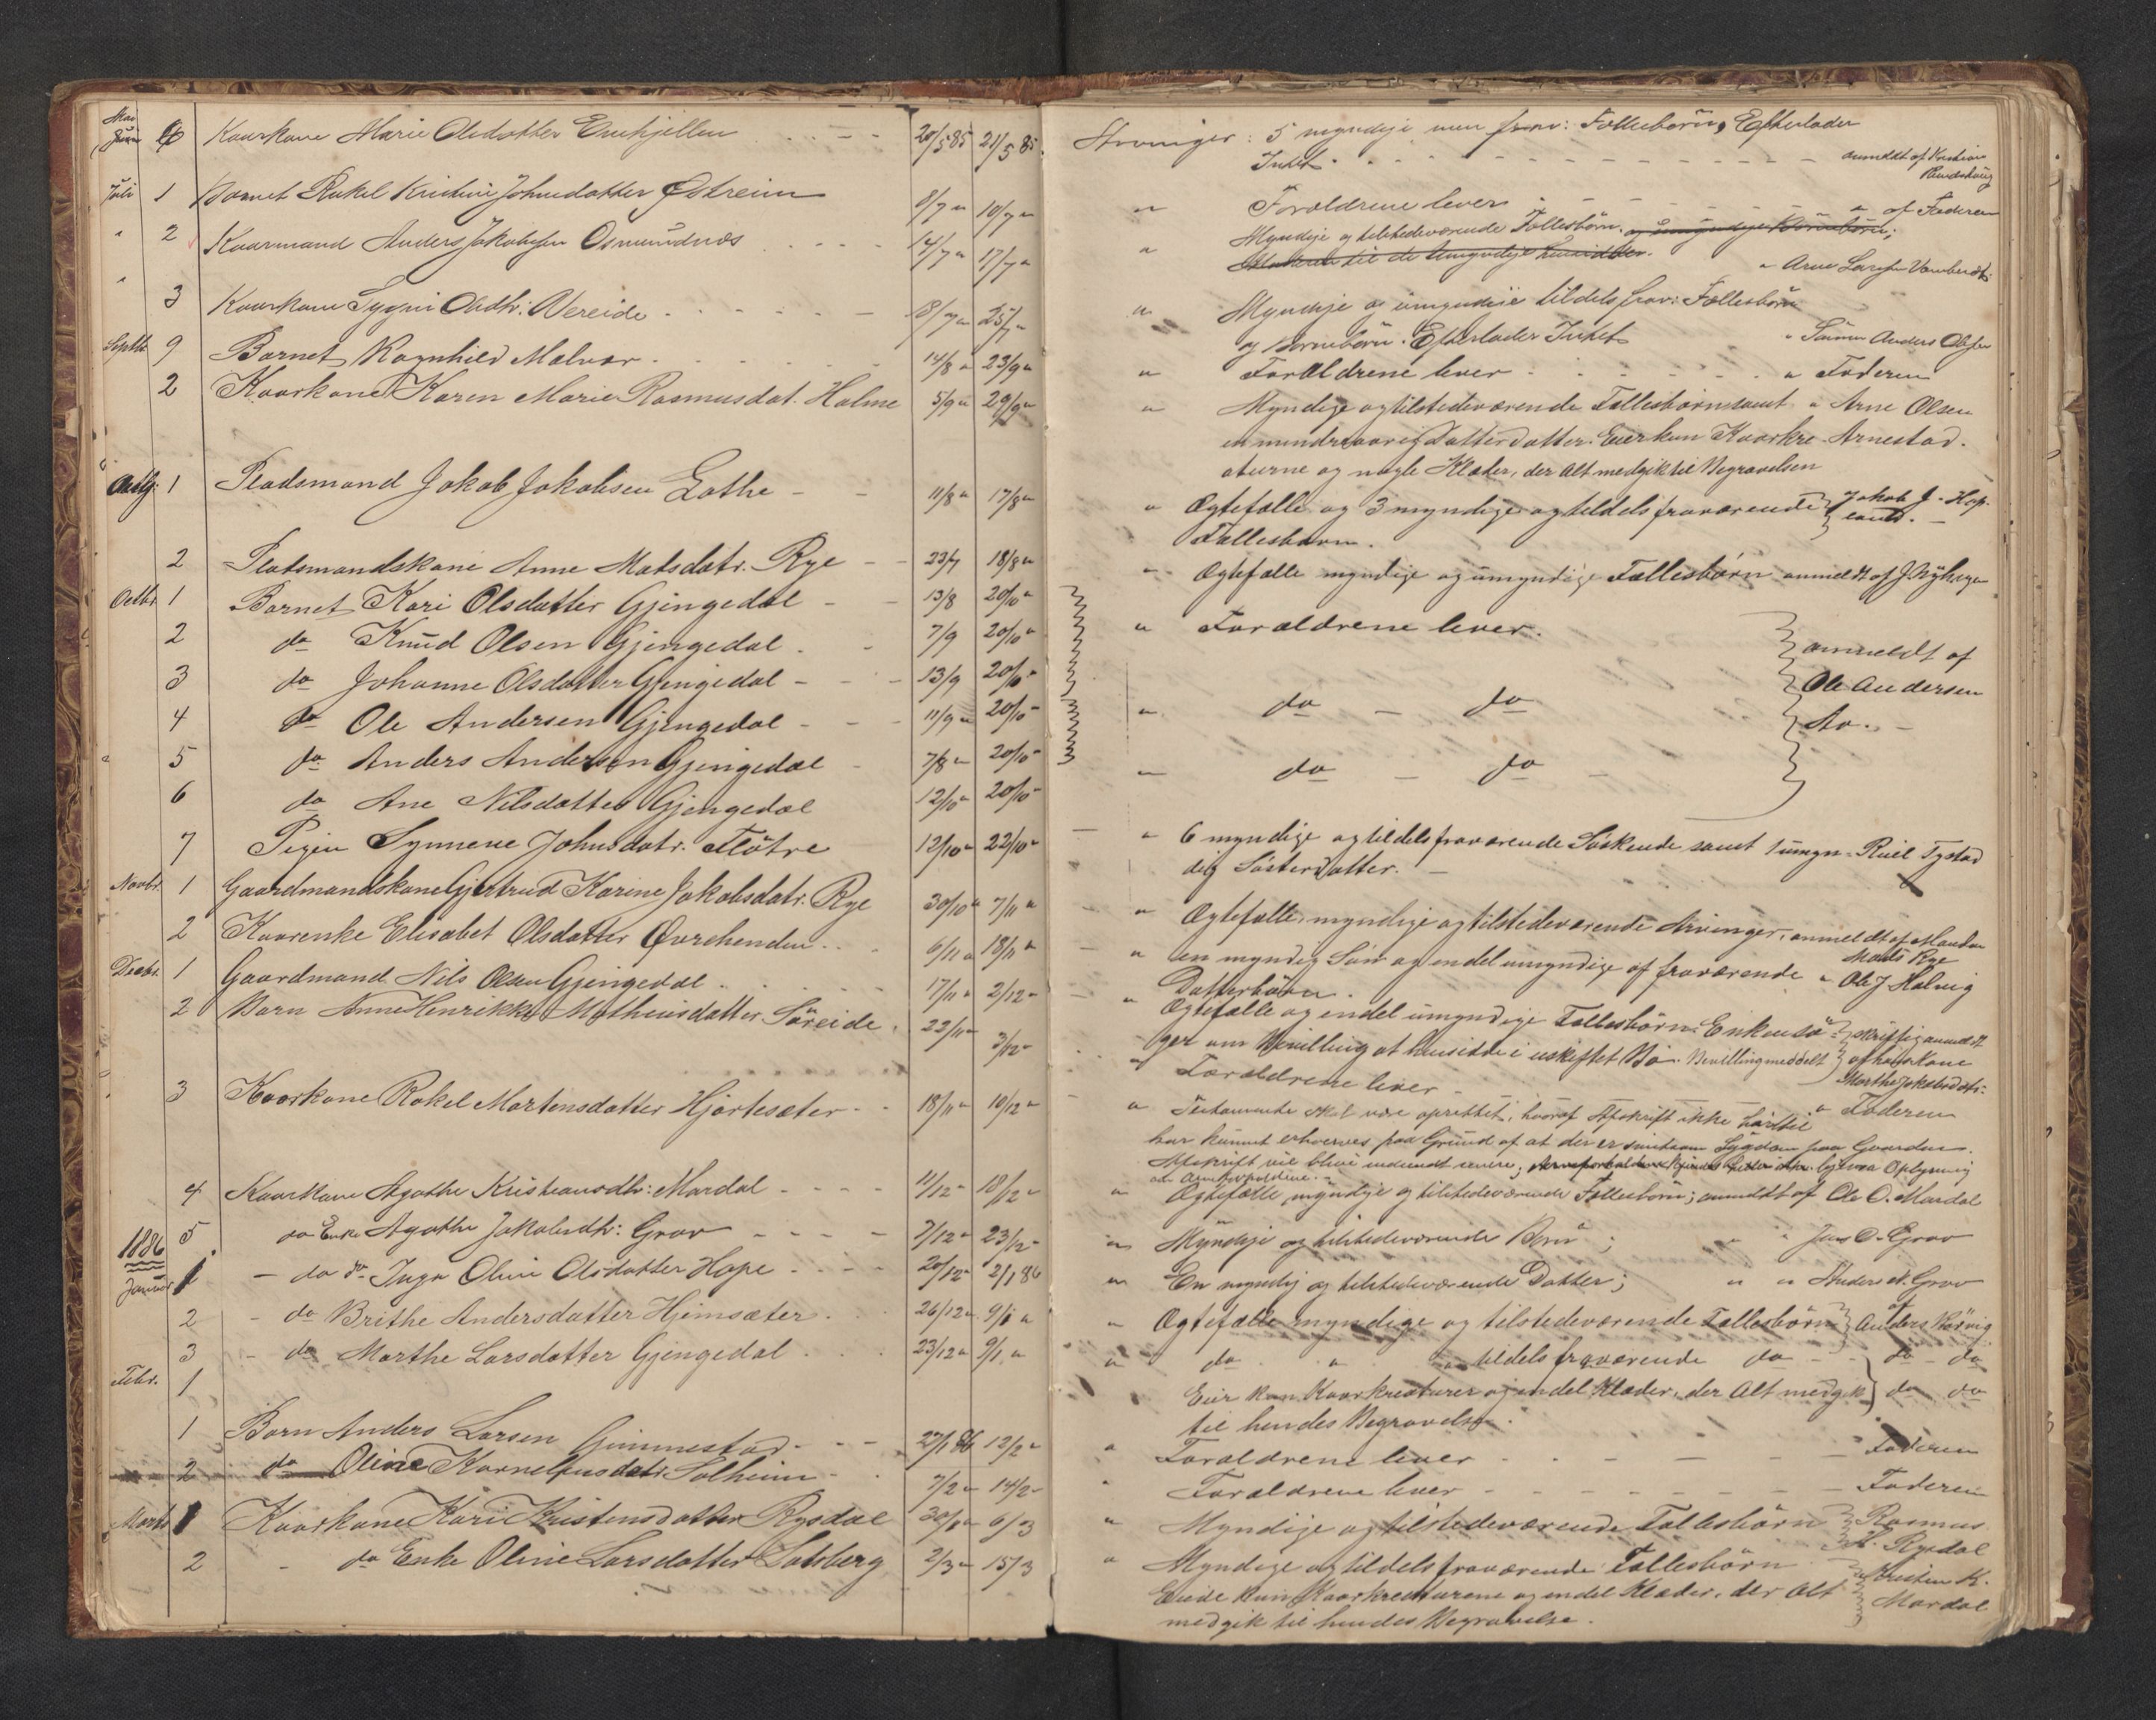 Mai
Juni 6 Kaarkone Marie Olsdatter 20/5 85 21/5 85.
Juli 1 Barnet Rakel Kristine Johnsdatter Østreim 8/7 " 10/7 "
" 2 Kaarmand Anders Jakobsen Osmundnæs 14/7 " 17/7 "
" 3 Kaarkone Sygni Olsdtr: Vereide 8/7 " 25/7 "
Septbr 9 Barnet Ragnhild Malvær 14/8 " 23/9 "
2 Kaarkone Karen Marie Rasmusdat. Holme 5/9 " 29/9 "
1 Pladsmand Jakob Jakobsen Lothe 11/8 " 17/8 "
2 Pladsmandskone Anne Matsdatr. Rye 23/7 18/8 "
Octbr. 1 Barnet Kari Olsdatter Gjengedal 13/8 20/10 "
2 do Knud Olsen Gjengedal 7/9 20/10 "
3 do Johanne Olsdatter Gjengedal 13/9 20/10 "
4 do Ole Andersen Gjengedal 11/9 " 20/10 "
" 5 do Anders Andersen Gjengedal 7/8 " 20/10 "
6 do Ane Nilsdatter Gjengedal 12/10 " 20/10 "
7 Pigen Synneve Johnsdatr. Fløtre 12/10 " 22/10 "
Novbr. 1 Gaardmandskone Gjertrud Karine Jakobsdatr. Rye 30/10 " 7/11 "
2 Kaarenke Elisabet Olsdatter 6/11 " 18/11 "
Decbr. 1 Gaardmand Nils Olsen Gjengedal 17/11 " 2/12 "
2 Barn Anne Henrikke Matheusdatter Søreide 22/11 " 3/12 "
3 Kaarkone Rakel Martensdatter Hjortesæter 18/11 " 10/12 "
4 Kaarkone Agathe Kristiansdtr: Mardal 11/12 " 18/12 "
5 do Enke Agathe Jakobsdtr: Grov 7/12 " 23/12 "
1886
Januar 1 - do do Inga Oline Olsdatter Hope 20/12 " 2/1 86
2 - do Brithe Andersdatter Hjemsæter 26/12 " 9/1 "
3 - do Marthe Larsdatter Gjengedal 23/12 " 9/1 "
Febr. 1
1 Barn Anders Larsen Gimmestad 27/1 86 12/2 "
2 do Oline Karneliusdatr. Solheim 7/2 " 14/2 "
Marts 1 Kaarkone Kari Kristensdatter Rygdal 30/1 " 6/3
2 - do Enke Oline Larsdatter 2/3 " 15/3
Arvinger: 5 myndige men frav: Fællesbørn, Efterlader
Intet anmeldt af Kristian
" Forældrene lever " af Faderen
" Myndige og tilstedeværende Fællesbørn. og umyndige Børnebørn;
" Arne Larsen
" Myndige og umyndige tildels frav: Fællesbørn
og Børnebørn. Efterlader Intet " Sønnen Anders Olsen
" Forældrene lever " Faderen
" Myndige og tilstedeværende Fællesbørn samt " Arne Olsen
en mindreaarig Datterdatter. Eier kun Kaarkre- Arnestad.
aturne og nogle Klæder, der Alt medgik til Begravelsen
" Ægtefælle og 3 myndige og tildels fraværende } Jakob J. Hop-
Fællesbørn. land.
" Ægtefælle myndige og umyndige Fællesbørn anmeldt af
" Forældrene lever. } anmeldt af
Ole Andersen
" do - do Aa. -
" do - do
" 6 myndige og tildels fraværende Søskende samt 1 umyn- Tystad
dig Søsterdatter. -
" Ægtefælle, myndige og tilstedeværende Arvinger, anmeldt af Manden
Mads Rye
" en myndig Søn og endel umyndige og fraværende " Ole J. Holvig
Datterbørn.
" Ægtefælle og endel umyndige Fællesbørn. Enken sø- } skriftlig anmeldt
ger om Bevilling at hensidde i uskiftet Bo. Bevilling meddelt } af
Marthe Jakobsdtr:
" Forældrene lever - " Faderen
" Testamente skal være oprettet, hvoraf Afskrift ikke hidtil
har kunnet erhverves paa Grund af at der er smitsom Sygdom paa Gaarden.
Afskrift vil blive indsendt senere; Oplysning
om Arveforholdene. -
" Ægtefælle myndige og tilstedeværende Fællesbørn; anmeldt af Ole O. Mardal
" Myndige og tilstedeværende Børn; " " Jens O. Grov
" En myndig og tilstedeværende Datter; " " Anders A. Grov
" Ægtefælle myndige og tilstedeværende Fællesbørn } af Anders
" do " " tildels fraværende do - } do - do
Eier kun Kaarkreaturer og endel Klæder, der Alt medgik } do do
til hendes Begravelse.
" Forældrene lever Faderen
" Forældrene lever Faderen
" Myndige og tilstedeværende Fællesbørn } Rasmus
K. Rygdal
" Myndige og tildels fraværende Fællesbørn } Kristen K.
Eiede kun Kaarkreaturene og endel Klæder, der Alt } Mardal
medgik til hendes Begravelse.